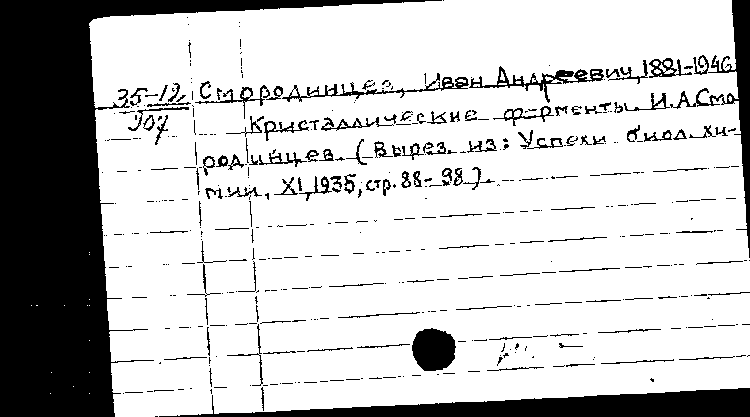 35-12 Смородинцев, Иван Андреевич, 1881-1946
207 Кристаллические ферменты. И.А.Смо
родинцев. (Вырез. из: Успехи биол. хи-
мии, XI, 1935, стр. 88-98).